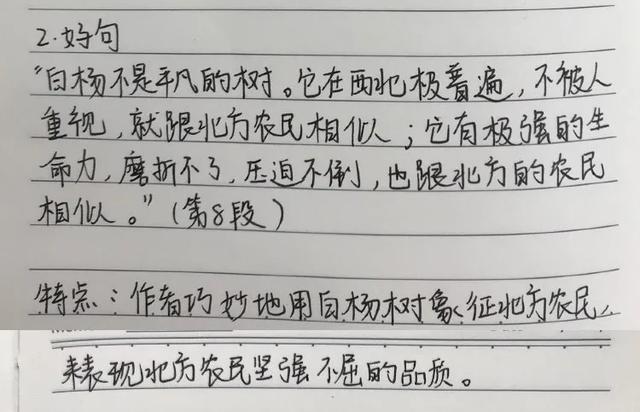 2.好句
“白杨不是平凡的树。它在西北极普遍，不被人
重视，就跟北方农民相似；它有极强的生
命力，磨折不了，压迫不倒，也跟北方的农民
相似。”（第8段）
特点：作者巧妙地用白杨树象征北方农民，
来表现北方农民坚强不屈的品质。